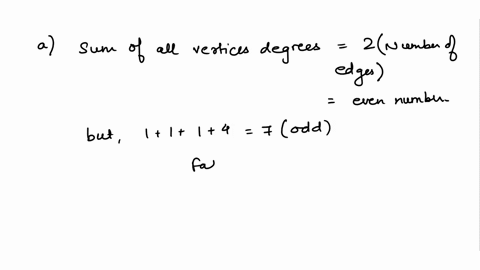 a) Sum of all vertices degrees = 2(Number of
edges)
= even number.
but, 1 + 1 + 1 + 4 = 7 (odd)
fa